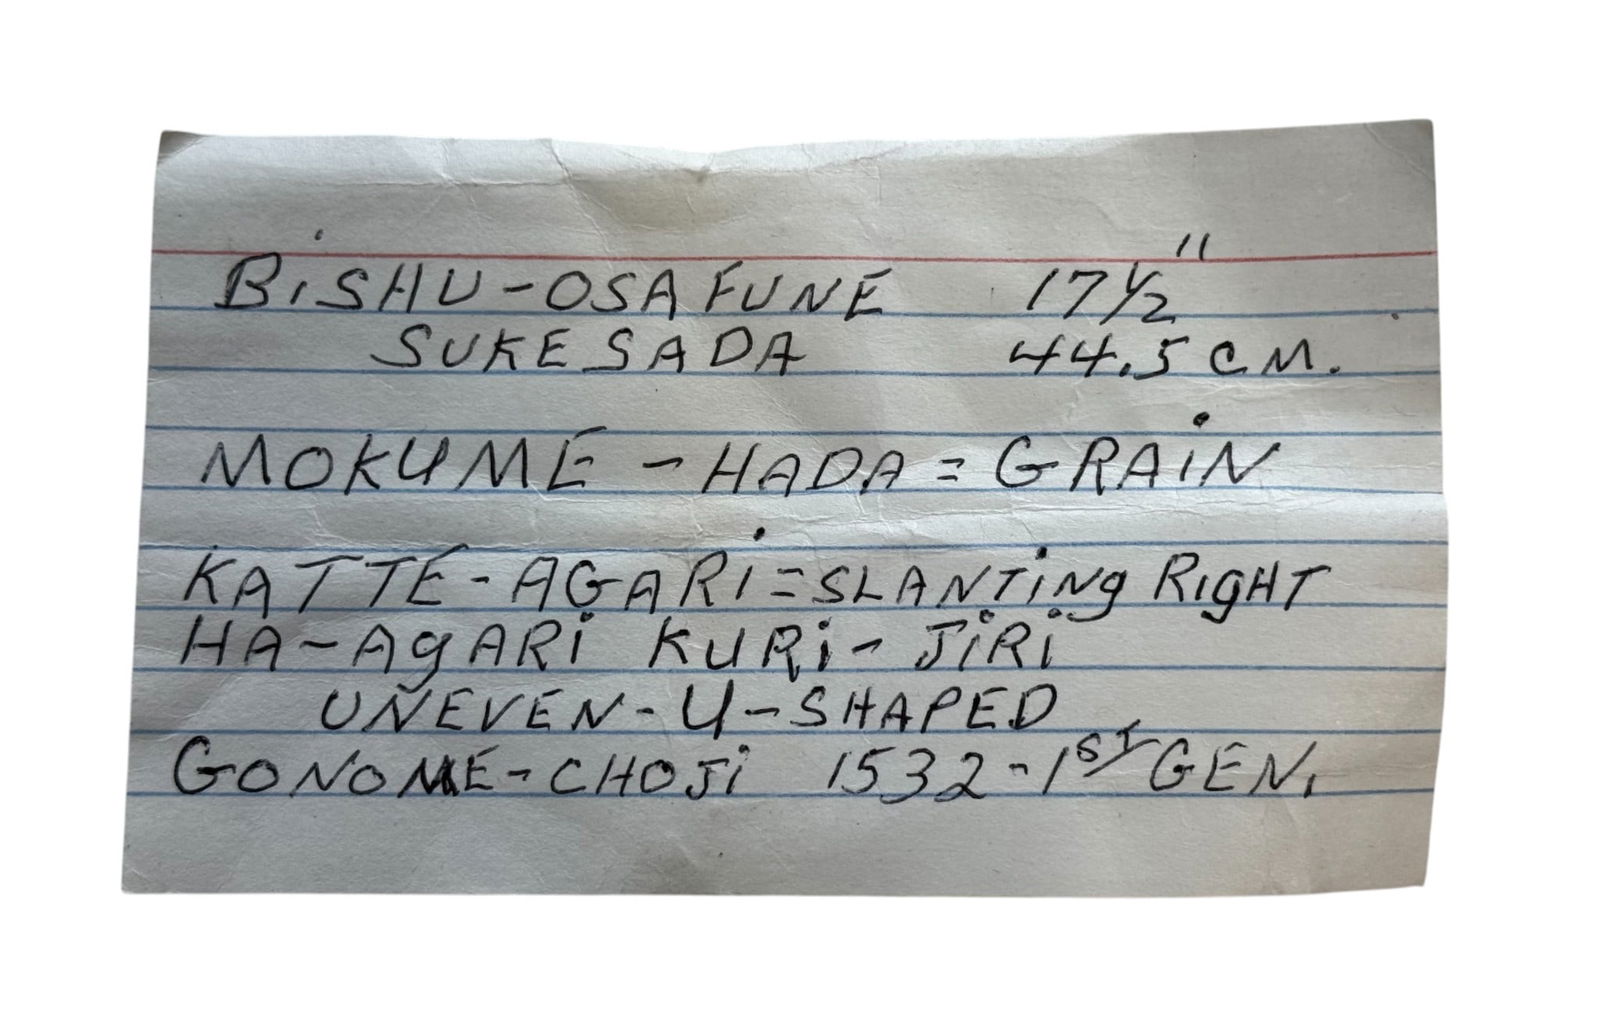 BiSHU-OSAFUNE 17 1/2"
SUKESADA 44.5 CM.
MOKUME - HADA = GRAiN
KATTE-AGARi = SLANTiNg RigHT
HA-AgARi KURi-JiRi
UNEVEN-U-SHAPED
GONOME-CHOJi 1532-1ST GEN.